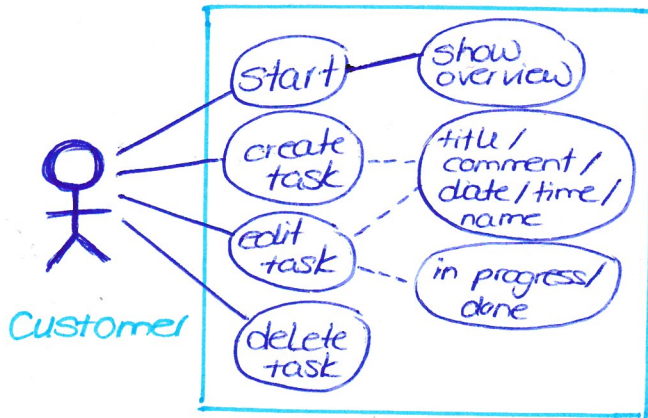 start
show
overview
create
task
title/
comment/
date/time/
name
edit
task
in progress/
done
delete
task
Customer